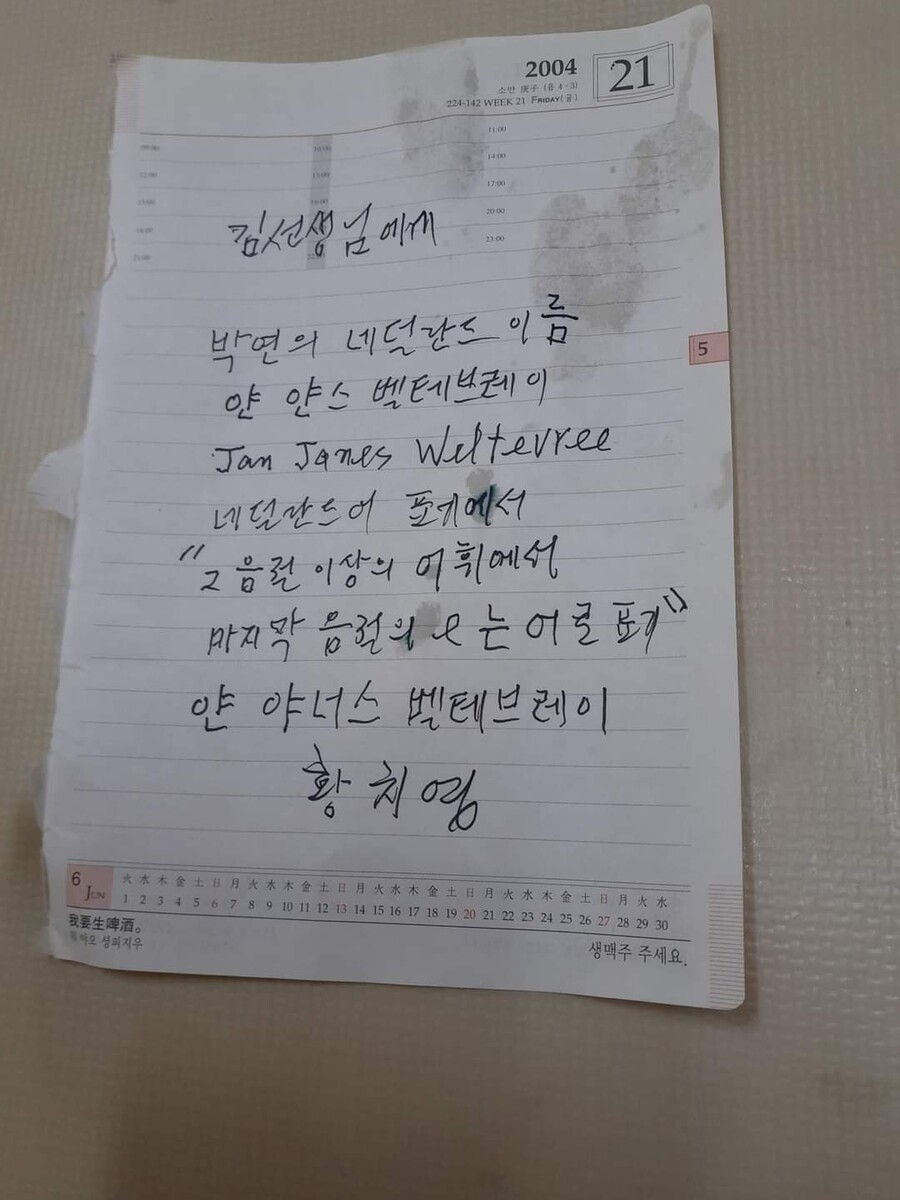 2004 21
소만 庚子 (음 4-3)
224-142 WEEK 21 FRIDAY(금)
09:00 10:00 11:00
12:00 13:00 14:00
15:00 16:00 17:00
18:00 20:00
21:00 23:00
김선생님에게
박연의 네덜란드 이름
5
얀 얀스 벨테브레이
Jan Janes Weltevree
네덜란드어 표기에서
"2음절 이상의 어휘에서
마지막 음절의 e는 어로 표기"
얀 야너스 벨테브레이
황치영
6 JUN 火 水 木 金 土 日 月 火 水 木 金 土 日 月 火 水 木 金 土 日 月 火 水 木 金 土 日 月 火 水
1 2 3 4 5 6 7 8 9 10 11 12 13 14 15 16 17 18 19 20 21 22 23 24 25 26 27 28 29 30
我要生啤酒。
야오 셩피지우 생맥주 주세요.